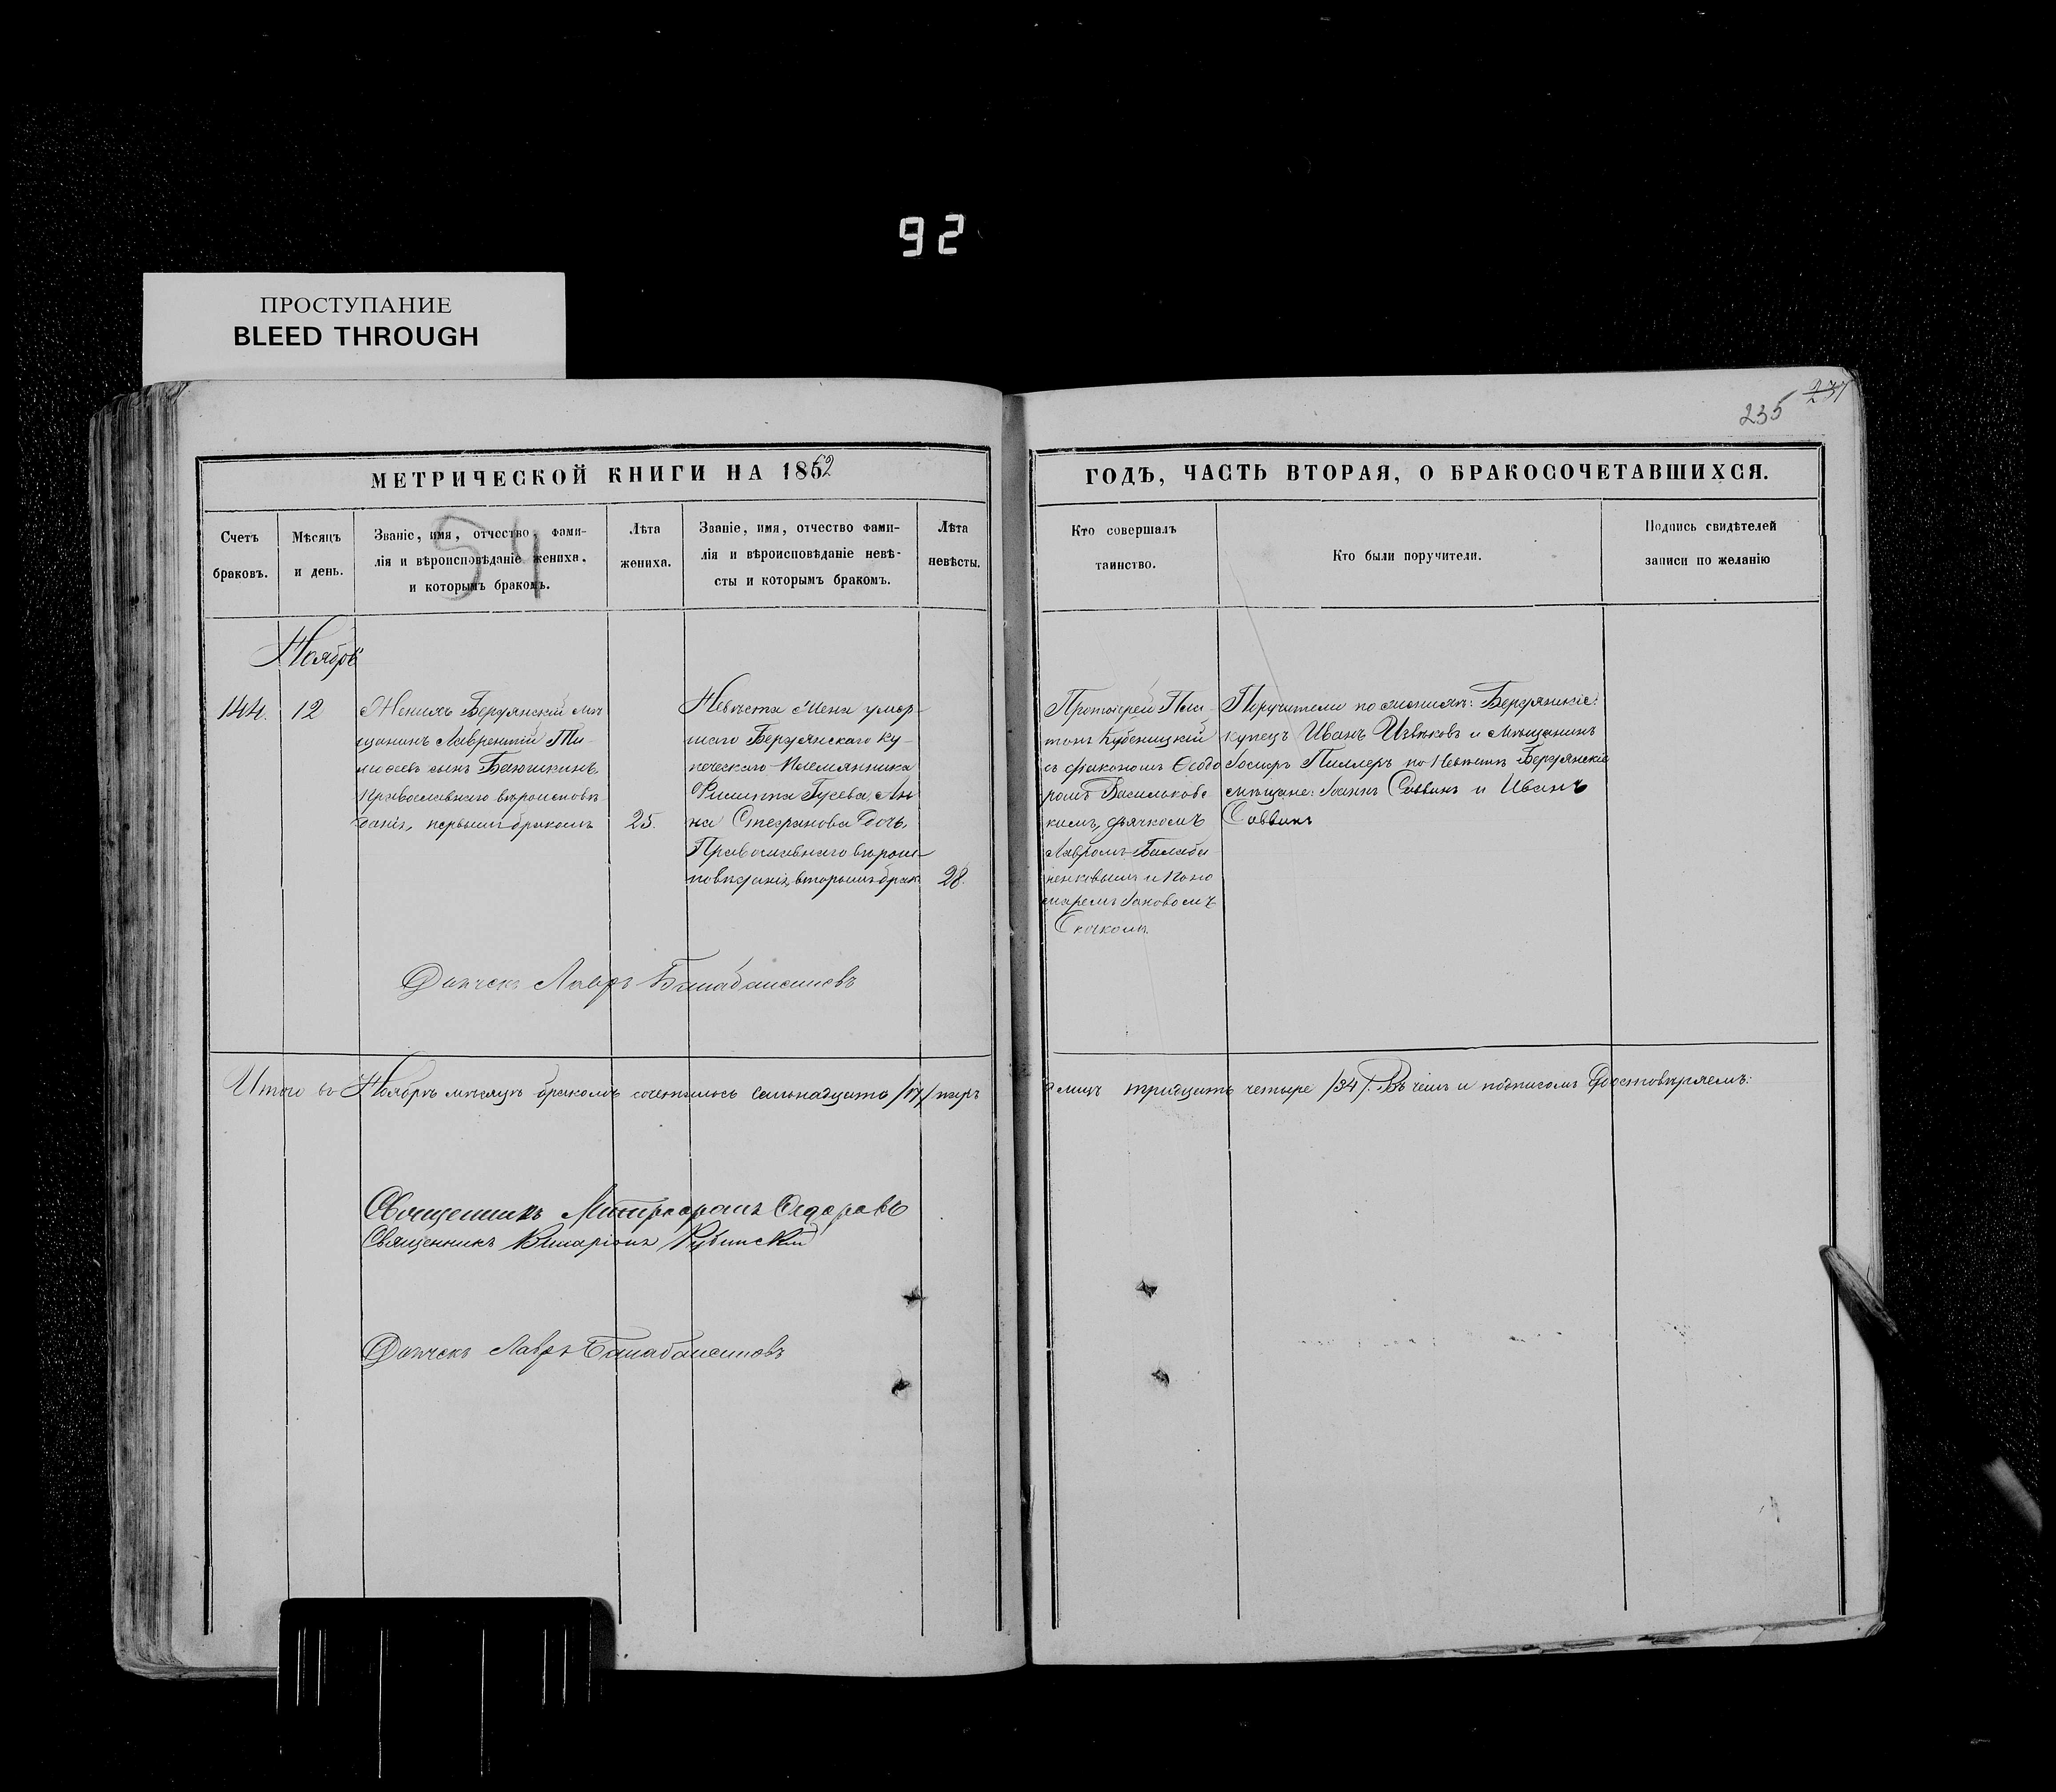 92
ПРОСТУПАНИЕ
BLEED THROUGH
237
235
МЕТРИЧЕСКОЙ КНИГИ НА 1862
ГОДЪ, ЧАСТЬ ВТОРАЯ, О БРАКОСОЧЕТАВШИХСЯ.
Счетъ браковъ.
Мѣсяцъ и день.
Званіе, имя, отчество, фами-
лія и вѣроисповѣданіе жениха,
и которымъ бракомъ.
Лѣта жениха.
Званіе, имя, отчество фами-
лія и вѣроисповѣданіе невѣ-
сты и которымъ бракомъ.
Лѣта невѣсты.
Кто совершалъ
таинство.
Кто были поручители.
Подпись свидѣтелей
записи по желанію
Ноябрь
144.
12
Женихъ Бердянскій мѣ
щанинъ Лаврентій Ти
сынъ
Православнаго вѣроисповѣ
данія, первымъ бракомъ
25.
Невѣста жена умер-
шаго Бердянскаго ку-
печескаго племянника
Филиппа Гусева, Ан
на Стефанова дочь,
Православнаго вѣроис-
повѣданія, вторымъ брак
28.
Протоіерей Пла-
тонъ
съ діакономъ Ѳеодо
ромъ Васильковс
кимъ, дьячкомъ
Лавромъ Балаба
ненковымъ и поно
маремъ Іаковомъ
Поручители по женихѣ: Бердянскіе:
купецъ Иванъ и мѣщанинъ
Іосифъ Пиллеръ по невѣстѣ Бердянскіе
мѣщане: Іоаннъ Саввинъ и Иванъ
Саввинъ
Дьячекъ Лавръ
Итого въ Ноябрѣ мѣсяцѣ бракомъ сочеталось семьнадцать /17/ паръ
а лицъ тридцать четыре /34/. Въ чемъ и подписомъ достовѣряемъ:
Священникъ Митрофанъ
Священникъ Иларіонъ
Дьячекъ Лавръ